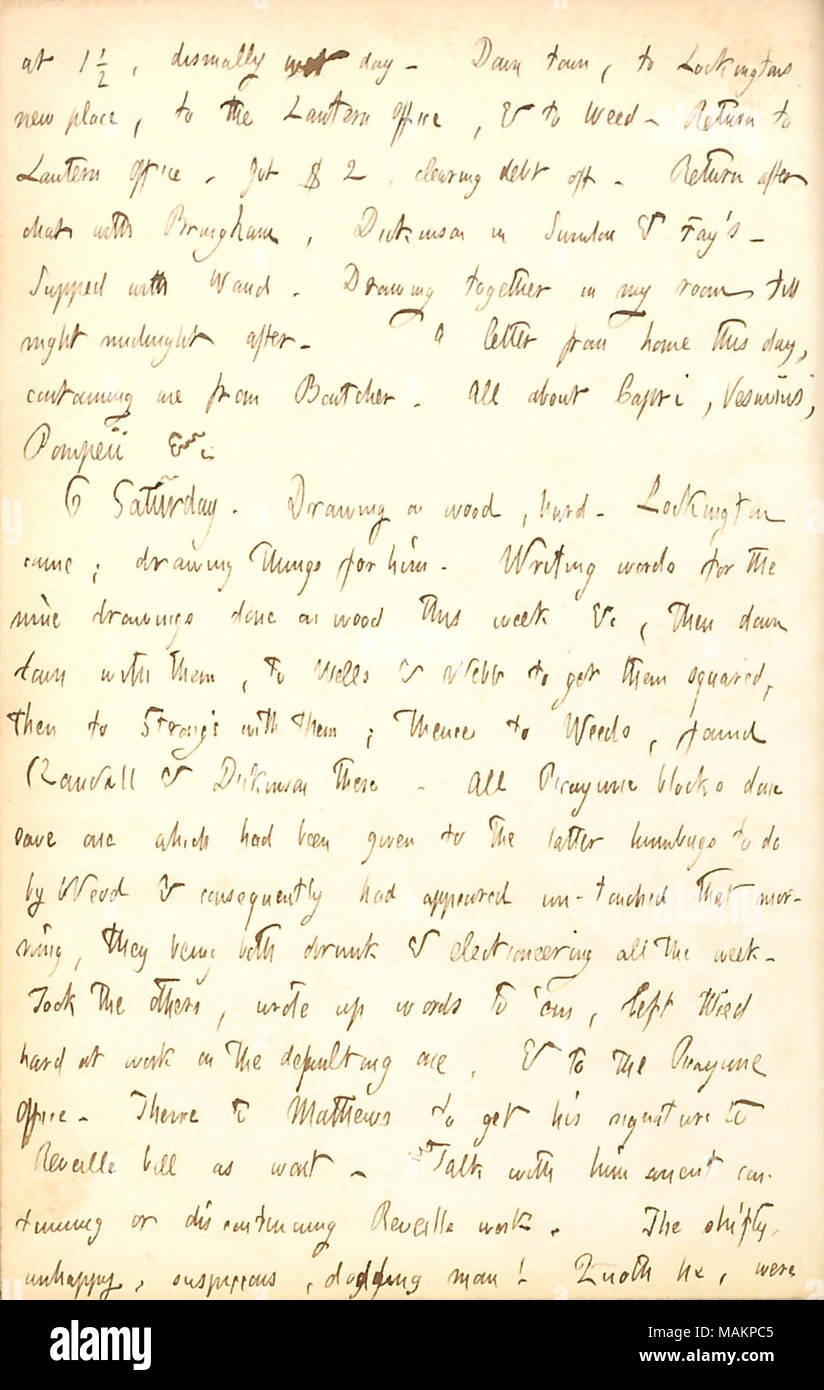 at 1 1/2, dismally wet day_ Down town, to Lockingtons
new place, to the Lantern Office, & to Weed_ Return to
Lantern Office. Got $ 2, clearing debt off_ Return after
chat with Brougham, Dickinson in Sunday & Fay's_
Supped with Waud. Drawing together in my room till
night midnight after_ A letter from home this day,
containing one from Boutcher. All about Capri, Vesuvius,
Pompeii &c.
6 Saturday. Drawing on wood, hard_ Lockington
came; drawing things for him_ Writing words for the
nine drawings done on wood this week &c, then down
town with them, to Wells & Webb to get them squared,
then to Strong's with them; thence to Weeds, found
Randall & Dickinson there_ All Picayune blocks done
save one which had been given to the latter humbugs to do
by Weed & consequently had appeared un-touched that mor-
ning, they being both drunk & electioneering all the week_
Took the others, wrote up words to 'em, left Weed
hard at work on the defaulting one, & to the Picayune
Office_ Thence to Mathews to get his signature to
Reveille bill as wont_ Talk with him anent con-
tinuing or discontinuing Reveille work. The shifty,
unhappy, suspicious, dodging man! Quoth he, were
alamy
Image ID: MAKPC5
www.alamy.com